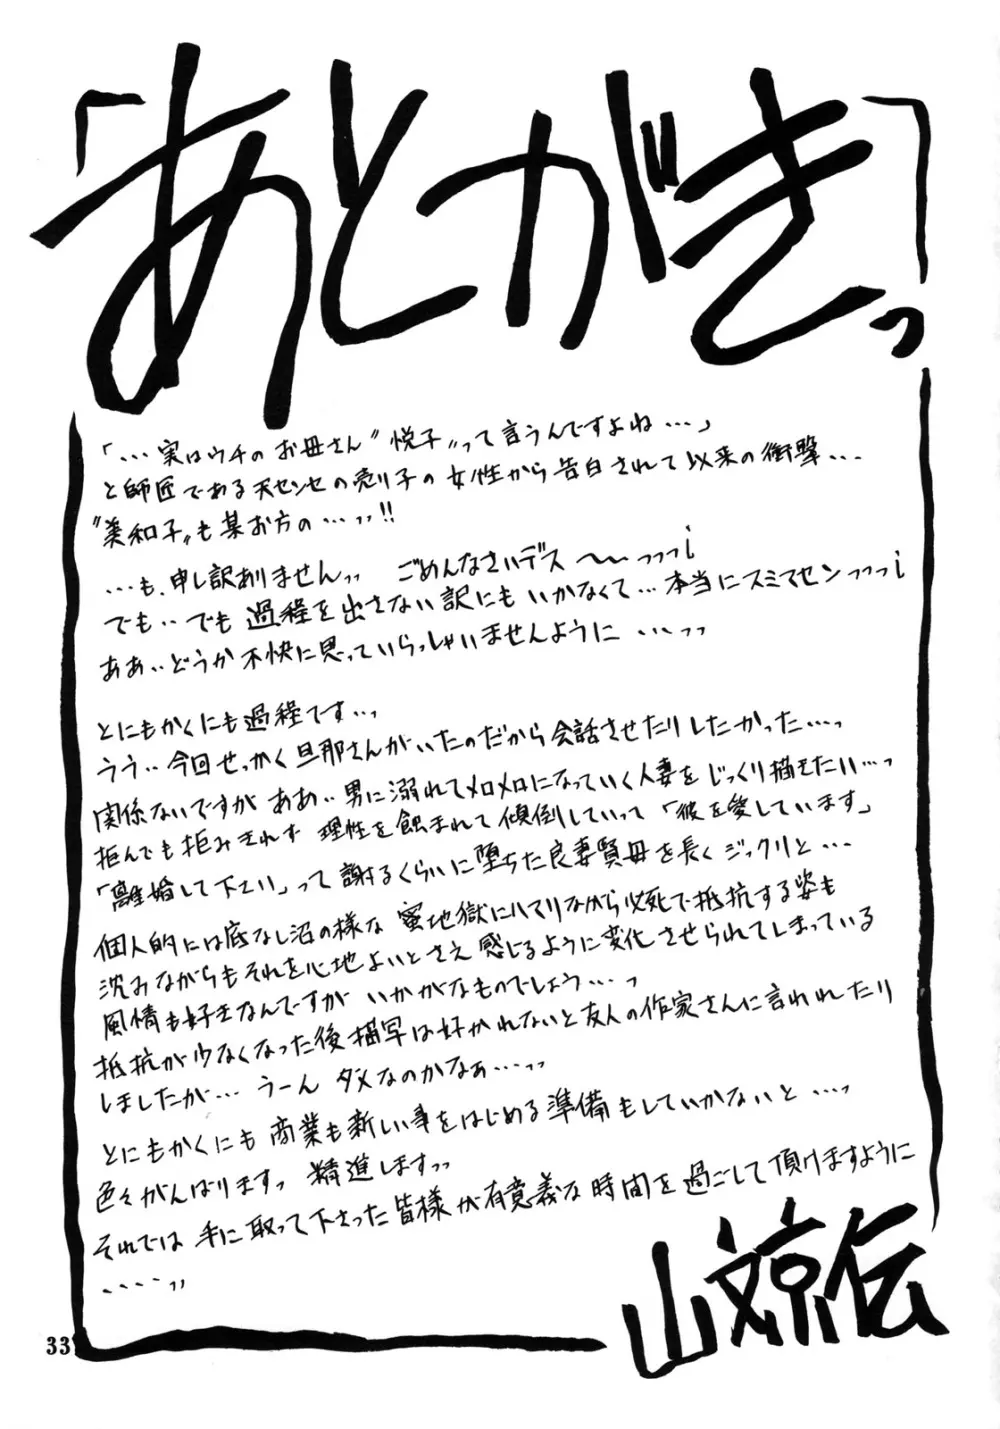 「あとがきっ」
「…実はウチのお母さん〝悦子〟って言うんですよね…」
と師匠である天センセの売り子の女性から告白されて以来の衝撃…
〝美和子〟も某お方の…ッッ!!
…も、申し訳ありませんッッ ごめんなさいデス〜〜っっっ!
でも‥でも過程を出さない訳にもいかなくて…本当にスミマセンっっっ!
ああ‥どうか不快に思っていらっしゃいませんように…ッッ
とにもかくにも過程です…っ
うう‥今回せっかく旦那さんがいたのだから会話させたりしたかった…っ
関係ないですがああ‥男に溺れてメロメロになっていく人妻をじっくり描きたい…っ
拒んでも拒みきれず理性を蝕まれて傾倒していって「彼を愛しています」
「離婚して下さい」って謝るくらいに堕ちた良妻賢母を長くジックリと…
個人的には底なし沼の様な蜜地獄にハマりながら必死で抵抗する姿も
沈みながらもそれを心地よいとさえ感じるように変化させられてしまっている
風情も好きなんですがいかがなものでしょう…っ
抵抗が少なくなった後描写は好かれないと友人の作家さんに言われたり
しましたが…うーんダメなのかなぁ…ッッ
とにもかくにも商業も新しい事をはじめる準備もしていかないと…っ
色々がんばりますっ 精進しますッッ
それでは手に取って下さった皆様が有意義な時間を過ごして頂けますように
‥‥ッッ
山文京伝
33